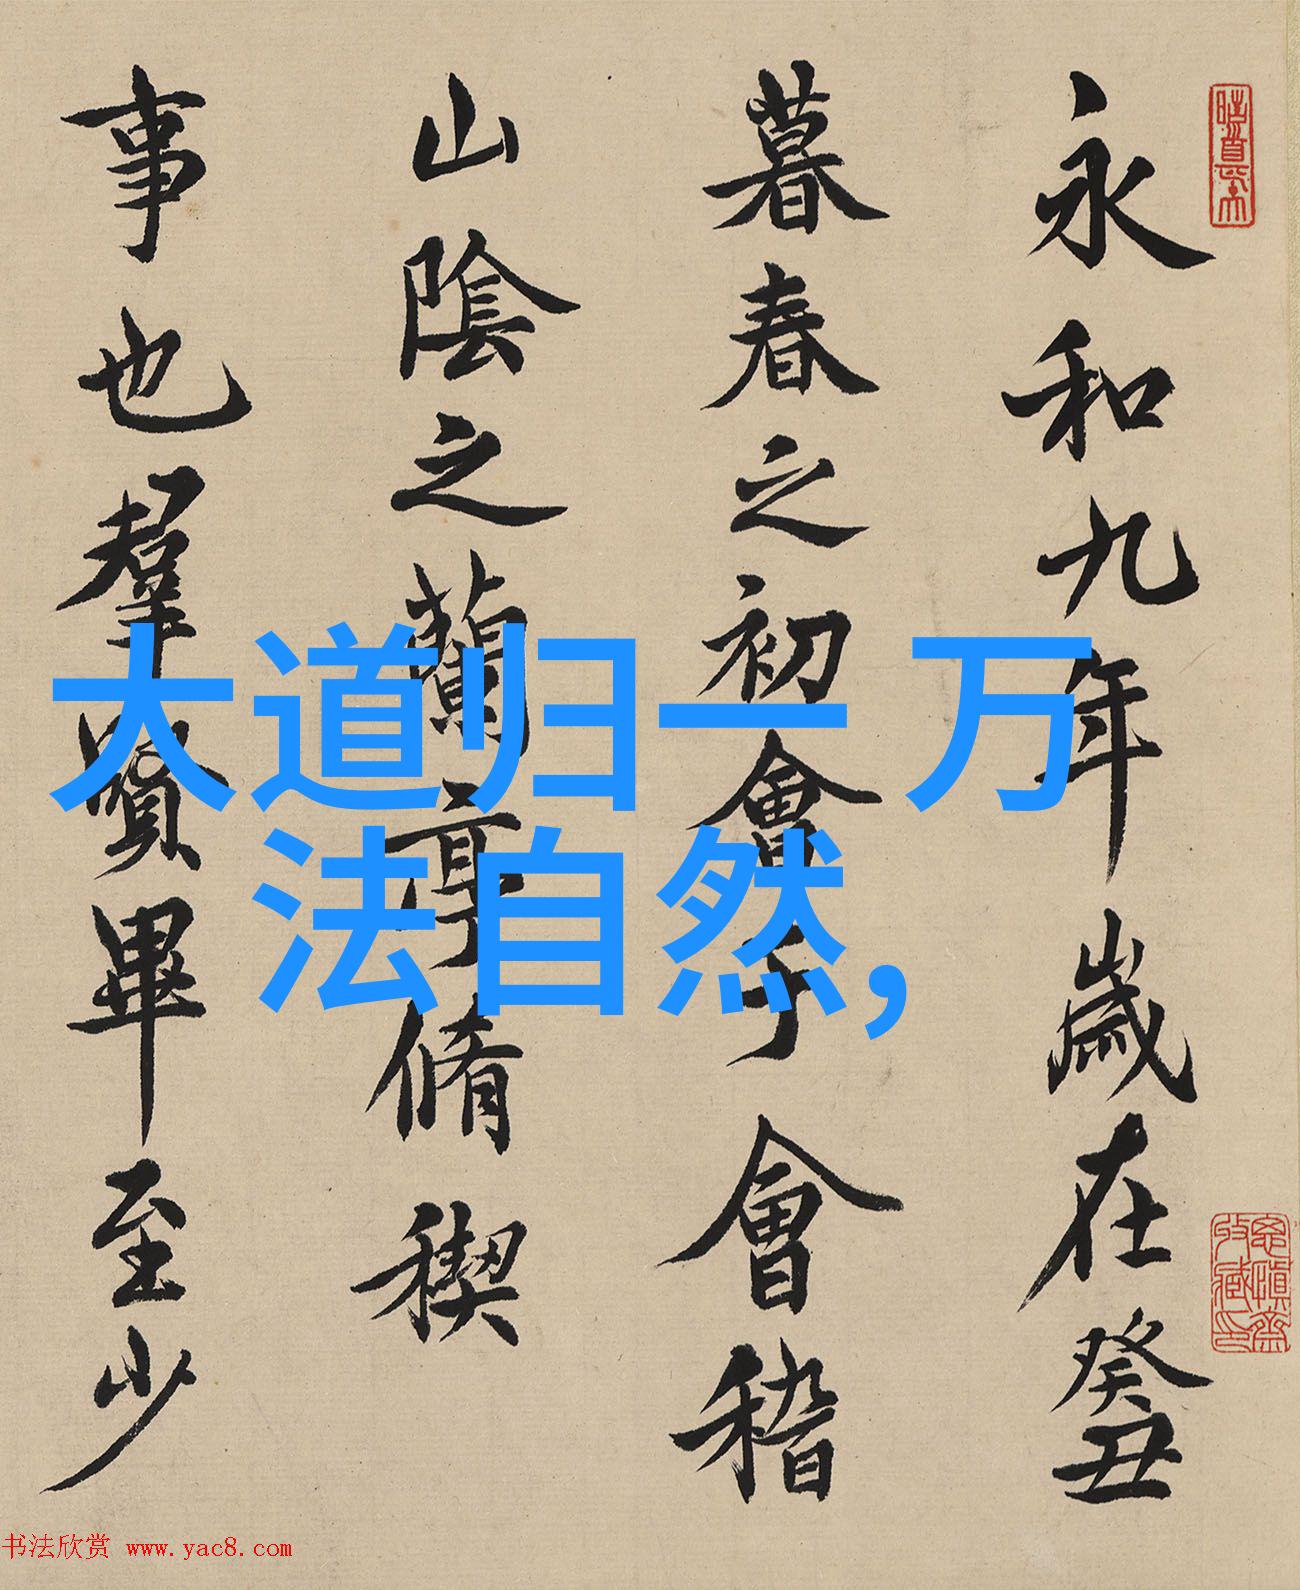 永和九年歲在癸丑
暮春之初會于會稽
山陰之蘭亭脩稧
事也羣賢畢至少
大道归一 万
法自然,
书法欣赏 www.yac8.com